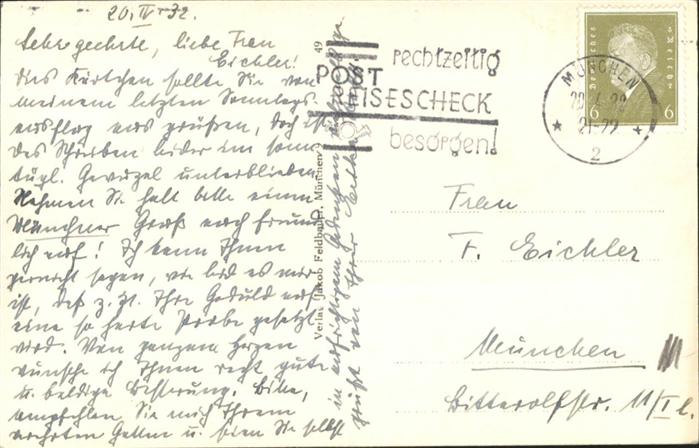 20.IV.32.
Sehr geehrte, liebe Frau
Eichler!
Das Kärtchen sollte Sie von
meinem letzten Sonntags-
ausflug aus grüßen, doch ist
das Schreiben leider im sonn-
tägl. unterblieben.
Nehmen Sie halt bitte einen
Münchner Gruß auch freund-
lich auf! Ich kann Ihnen
garnicht sagen, wie leid es mir
ist, daß z. Zt. Ihre Geduld auf
eine so harte Probe gesetzt
wird. Von ganzem Herzen
wünsche ich Ihnen recht gute
u. baldige Besserung. Bitte,
empfehlen Sie mich Ihrem
verehrten Gatten u. seien Sie selbst
in aufrichtigem Gedenken
gegrüßt von Ihrer
Verlag Jakob Feldbauer, München 9
49
rechtzeitig
POST
REISESCHECK
besorgen!
MÜNCHEN
21-22
2
Deutsches Reich
6 6
Frau
F. Eichler
München
Bitterolfstr. 11/I l.